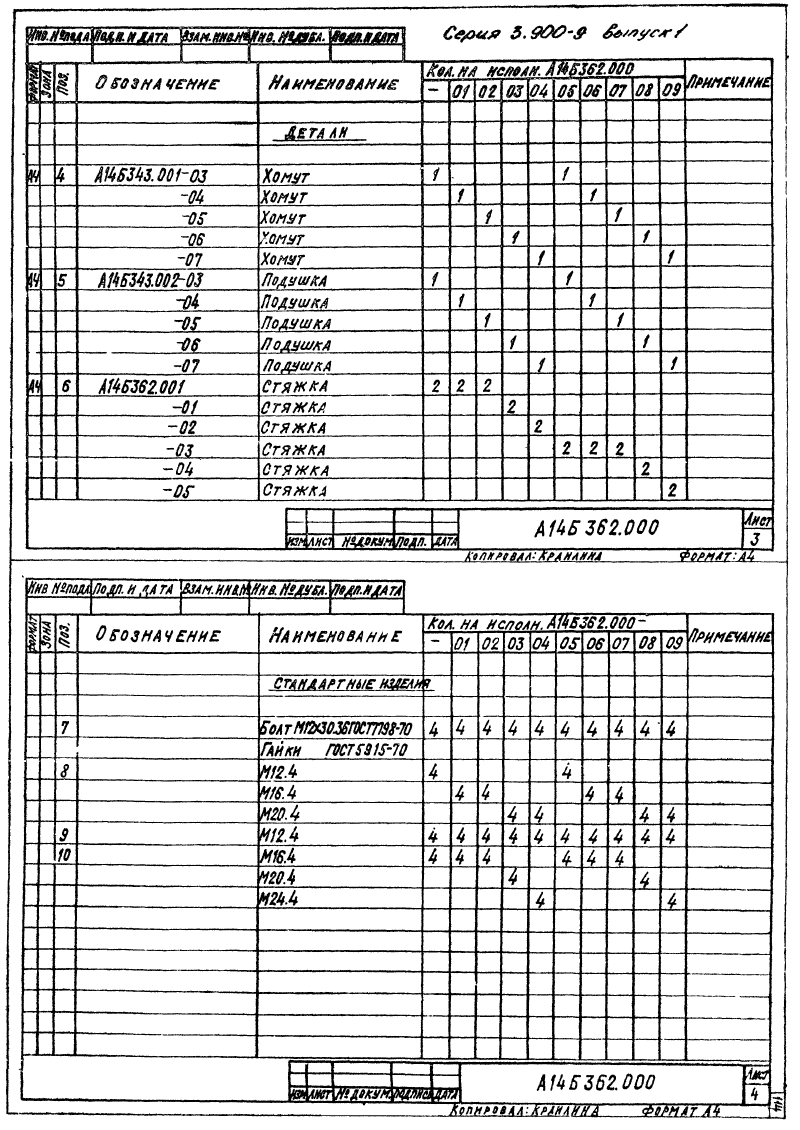 Серия 3.900-9 Выпуск 1
ИНВ. № ПОДЛ. ПОДП. И ДАТА ВЗАМ. ИНВ. № ИНВ. № ДУБЛ. ПОДП. И ДАТА
ФОРМАТ ЗОНА ПОЗ. ОБОЗНАЧЕНИЕ НАИМЕНОВАНИЕ КОЛ. НА ИСПОЛН. А14Б362.000 ПРИМЕЧАНИЕ
– 01 02 03 04 05 06 07 08 09
ДЕТАЛИ
А4 4 А14Б343.001-03 ХОМУТ 1 1
-04 ХОМУТ 1 1
-05 ХОМУТ 1 1
-06 ХОМУТ 1 1
-07 ХОМУТ 1 1
А4 5 А14Б343.002-03 ПОДУШКА 1 1
-04 ПОДУШКА 1 1
-05 ПОДУШКА 1 1
-06 ПОДУШКА 1 1
-07 ПОДУШКА 1 1
А4 6 А14Б362.001 СТЯЖКА 2 2 2
-01 СТЯЖКА 2
-02 СТЯЖКА 2
-03 СТЯЖКА 2 2 2
-04 СТЯЖКА 2
-05 СТЯЖКА 2
ИЗМ ЛИСТ № ДОКУМ. ПОДП. ДАТА А14Б362.000 ЛИСТ 3
КОПИРОВАЛ: КРАНЛИНА ФОРМАТ: А4
ИНВ № ПОДЛ ПОДП. И ДАТА ВЗАМ. ИНВ. № ИНВ. № ДУБЛ. ПОДП. И ДАТА
ФОРМАТ ЗОНА ПОЗ. ОБОЗНАЧЕНИЕ НАИМЕНОВАНИЕ КОЛ. НА ИСПОЛН. А14Б362.000– ПРИМЕЧАНИЕ
– 01 02 03 04 05 06 07 08 09
СТАНДАРТНЫЕ ИЗДЕЛИЯ
7 БОЛТ М12х30.36 ГОСТ 7798-70 4 4 4 4 4 4 4 4 4 4
ГАЙКИ ГОСТ 5915-70
8 М12.4 4 4
М16.4 4 4 4 4
М20.4 4 4 4 4
9 М12.4 4 4 4 4 4 4 4 4 4 4
10 М16.4 4 4 4 4 4 4
М20.4 4 4
М24.4 4 4
ИЗМ ЛИСТ № ДОКУМ. ПОДПИСЬ ДАТА А14Б362.000 ЛИСТ 4
КОПИРОВАЛ: КРАНЛИНА ФОРМАТ А4